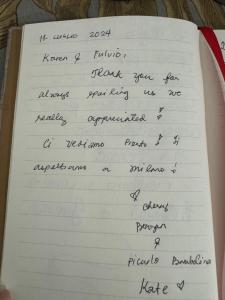 18 Luglio 2024
Karen & Fulvio,
Thank you for
always spoiling us we
really appreciated !
Ci vediamo Presto ! Vi
aspettiamo a milano !
Cheryl
&
Piccolo Bambolino
Kate